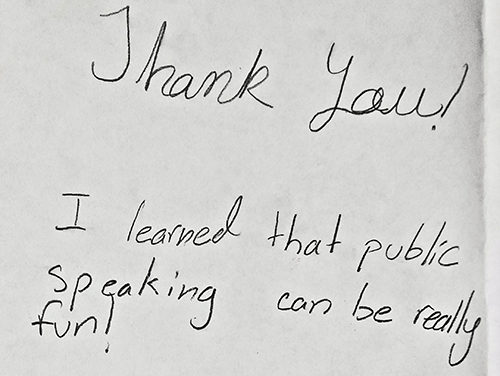 Thank You!
I learned that public
speaking can be really
fun!